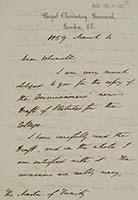 Royal Observatory, Greenwich,
London, S.E.
1859 March 4
Dear Whewell
I am very much
obliged to you for the copy of
the Commissioners' new
Draft of Statutes for the
College.
I have carefully read the
Draft, and on the whole I
am satisfied with it. The
occasions are really many,
The Master of Trinity